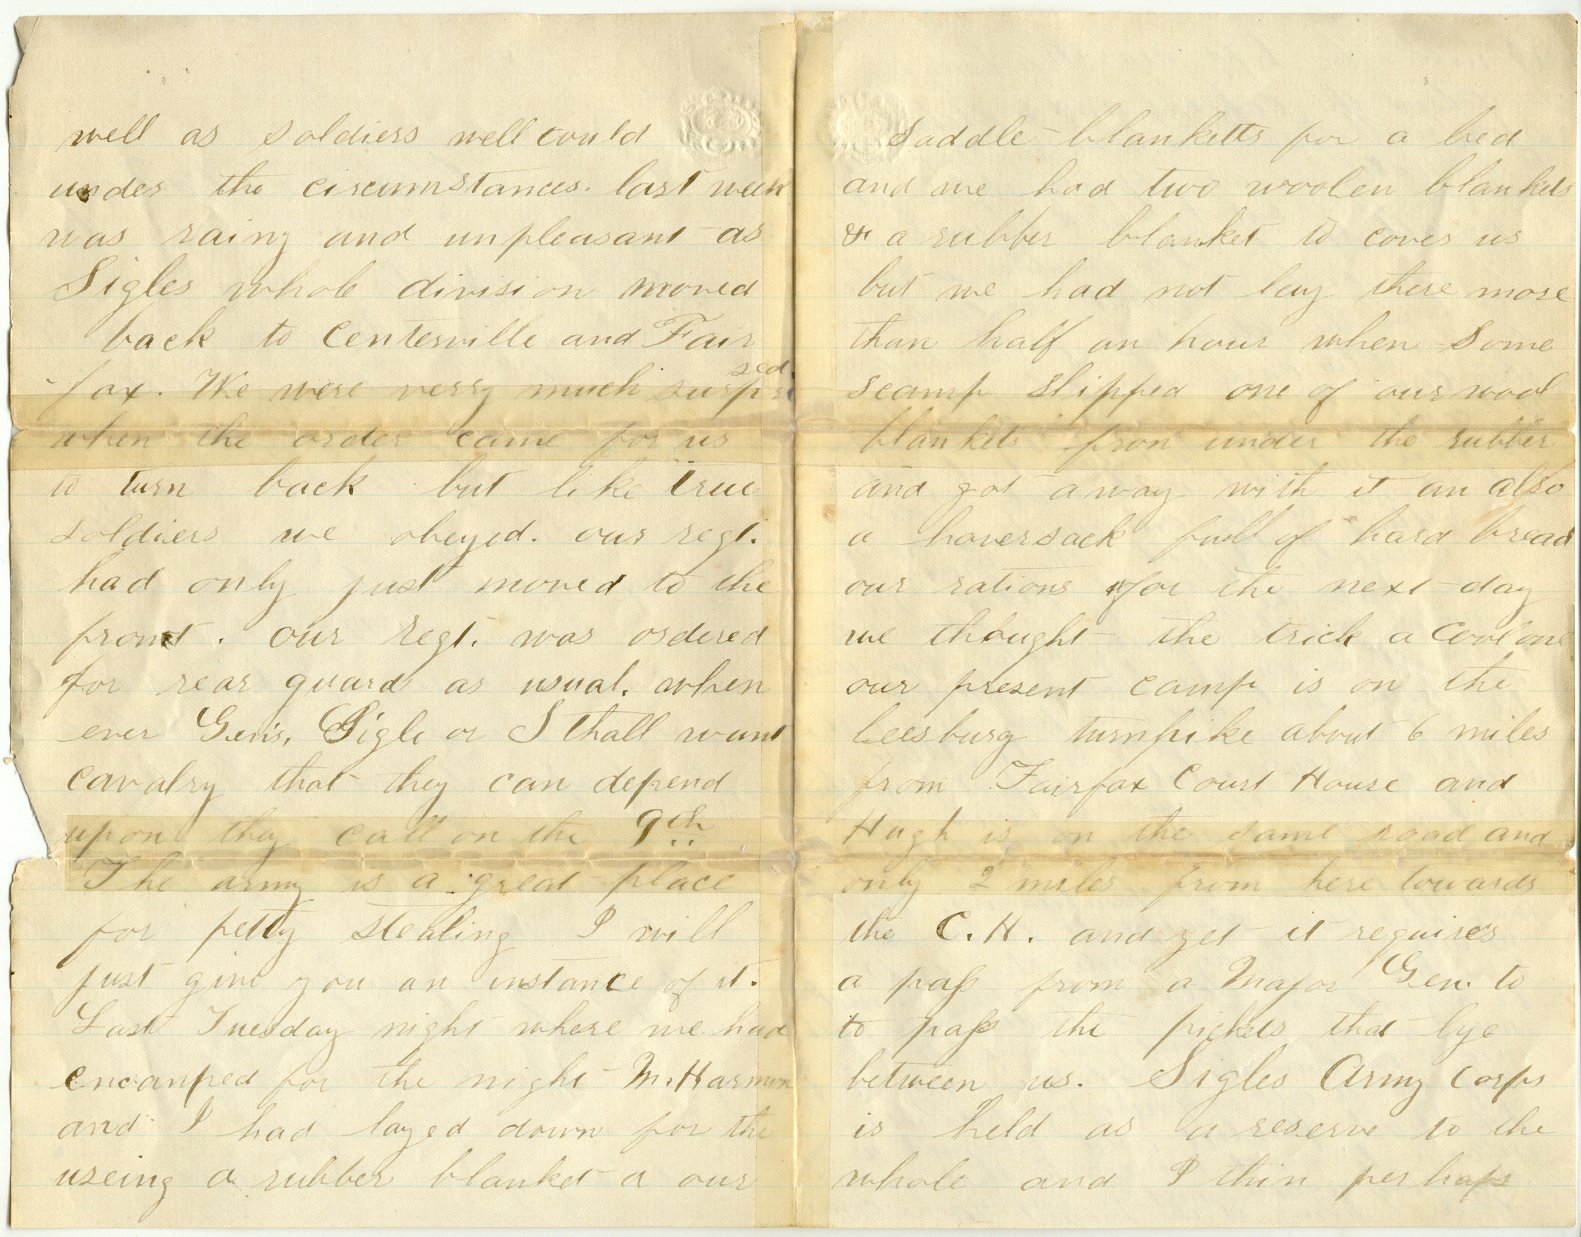 well as soldiers well could
under the circumstances. last week
was rainy and unpleasant as
Sigles whole division moved
back to Centerville and Fair
fax. We were verry much surprised
when the order came for us
to turn back but like true
soldiers we obeyed. our regt.
had only just moved to the
front. our regt. was ordered
for rear guard as usual. when
ever Gen's. Sigle or Sthall want
cavalry that they can depend
upon they call on the 9th
The army is a great place
for petty stealing I will
just give you an instance of it.
Last Tuesday night where we had
encamped for the night M. Harmon
and I had layed down for the
useing a rubber blanket a our
saddle blanketts for a bed
and we had two woolen blankets
& a rubber blanket to cover us
but we had not lay there more
than half an hour when some
scamp slipped one of our wool
blankets from under the rubber
and got away with it an also
a haversack full of hard bread
our rations for the next day
we thought the trick a cool one
our present camp is on the
Leesburg turnpike about 6 miles
from Fairfax Court House and
Hugh is on the same road and
only 2 miles from here towards
the C.H. and yet it requires
a pass from a Major Gen. to
to pass the pickets that lye
between us. Sigles Army Corps
is held as a reserve to the
whole and I thin perhaps